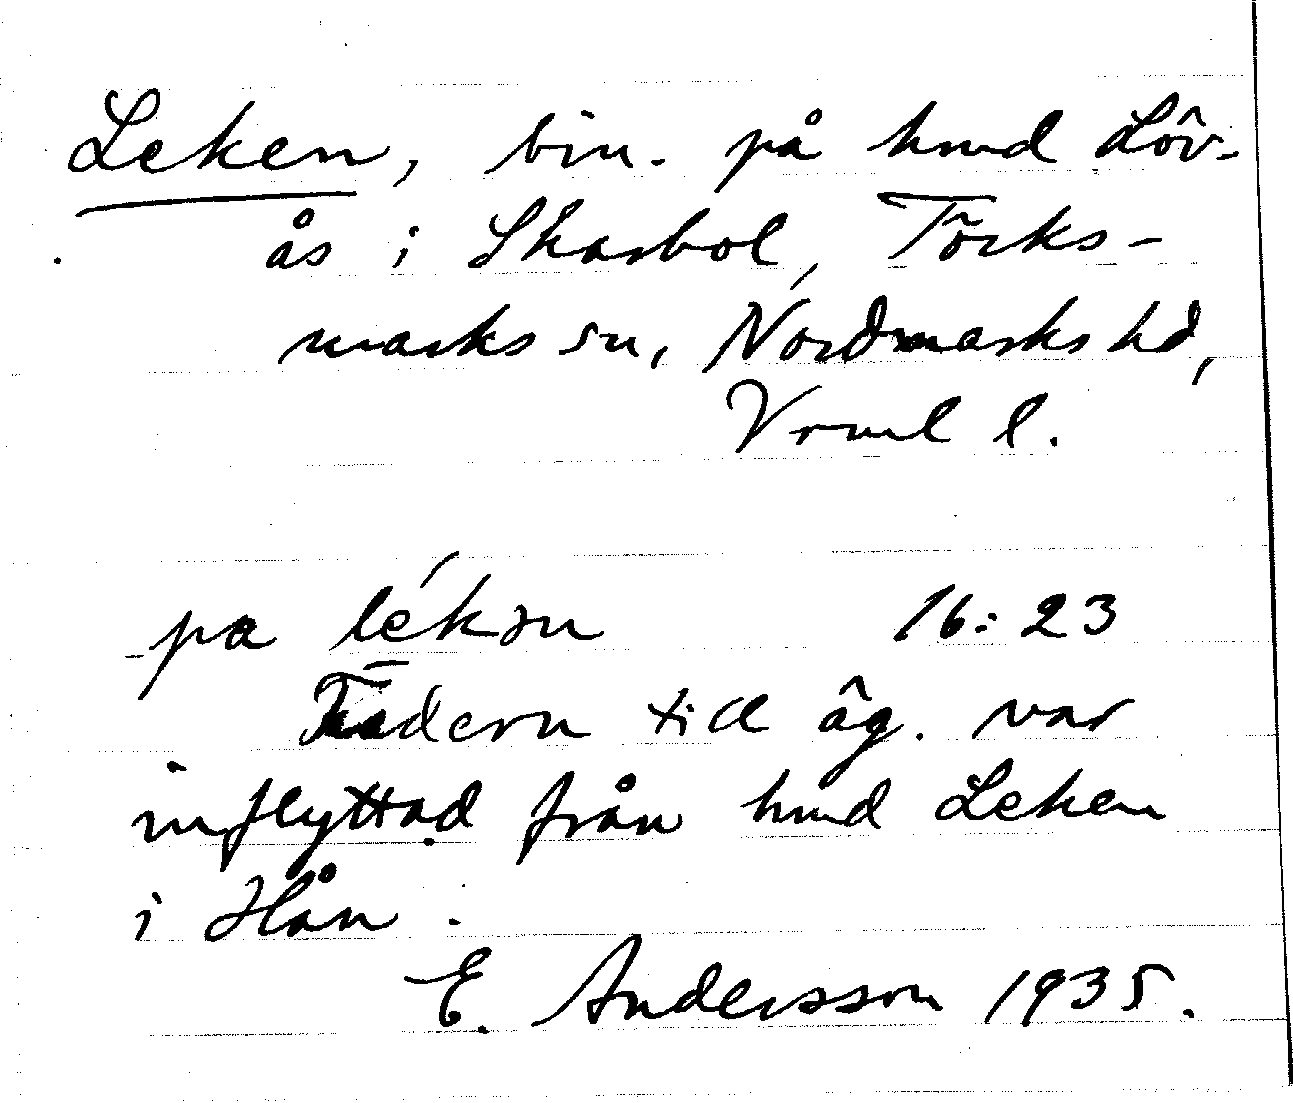 Leken, bin. på hmd Löv-
ås i Skarbol, Töcks-
marks sn, Nordmarks hd,
Vrml l.
pa lékən 16:23
Fadern till äg. var
inflyttad från hmd Leken
i Hån.
E. Andersson 1935.